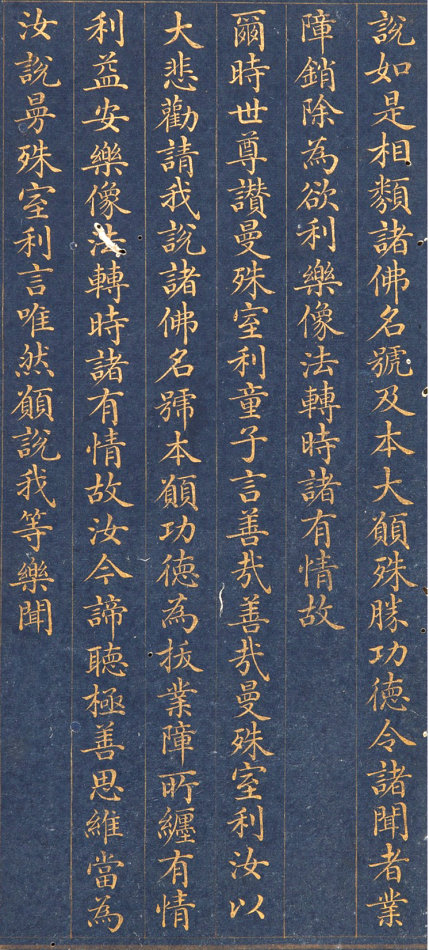 說如是相類諸佛名號及本大願殊勝功德令諸聞者業
障銷除為欲利樂像法轉時諸有情故
爾時世尊讚曼殊室利童子言善哉善哉曼殊室利汝以
大悲勸請我說諸佛名號本願功德為拔業障所纏有情
利益安樂像法轉時諸有情故汝今諦聽極善思維當為
汝說曼殊室利言唯然願說我等樂聞